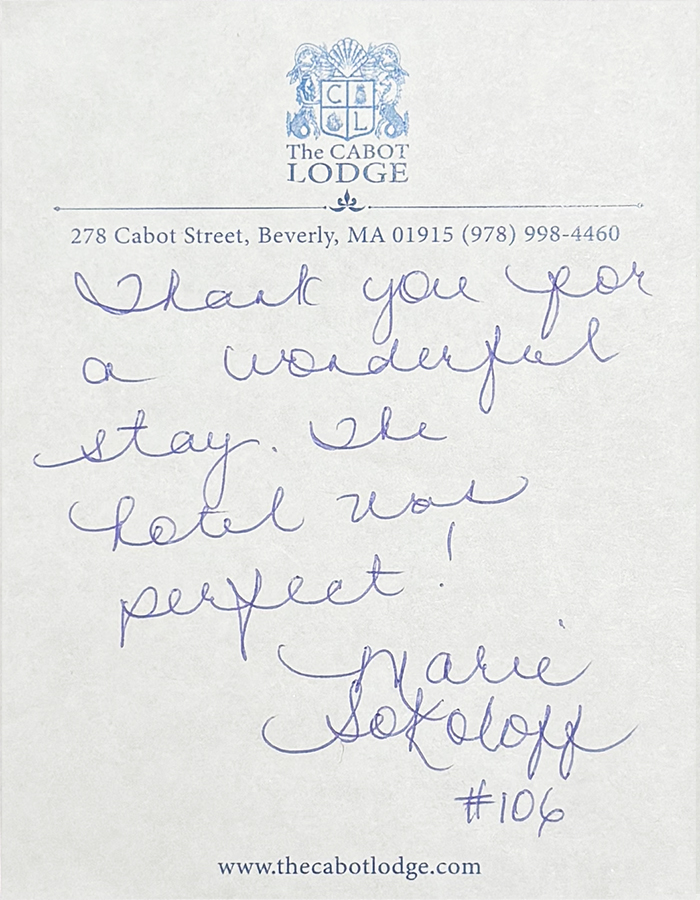 C
L
The CABOT
LODGE
278 Cabot Street, Beverly, MA 01915 (978) 998-4460
Thank you for
a wonderful
stay. The
hotel was
perfect!
Marie
Sokoloff
#106
www.thecabotlodge.com